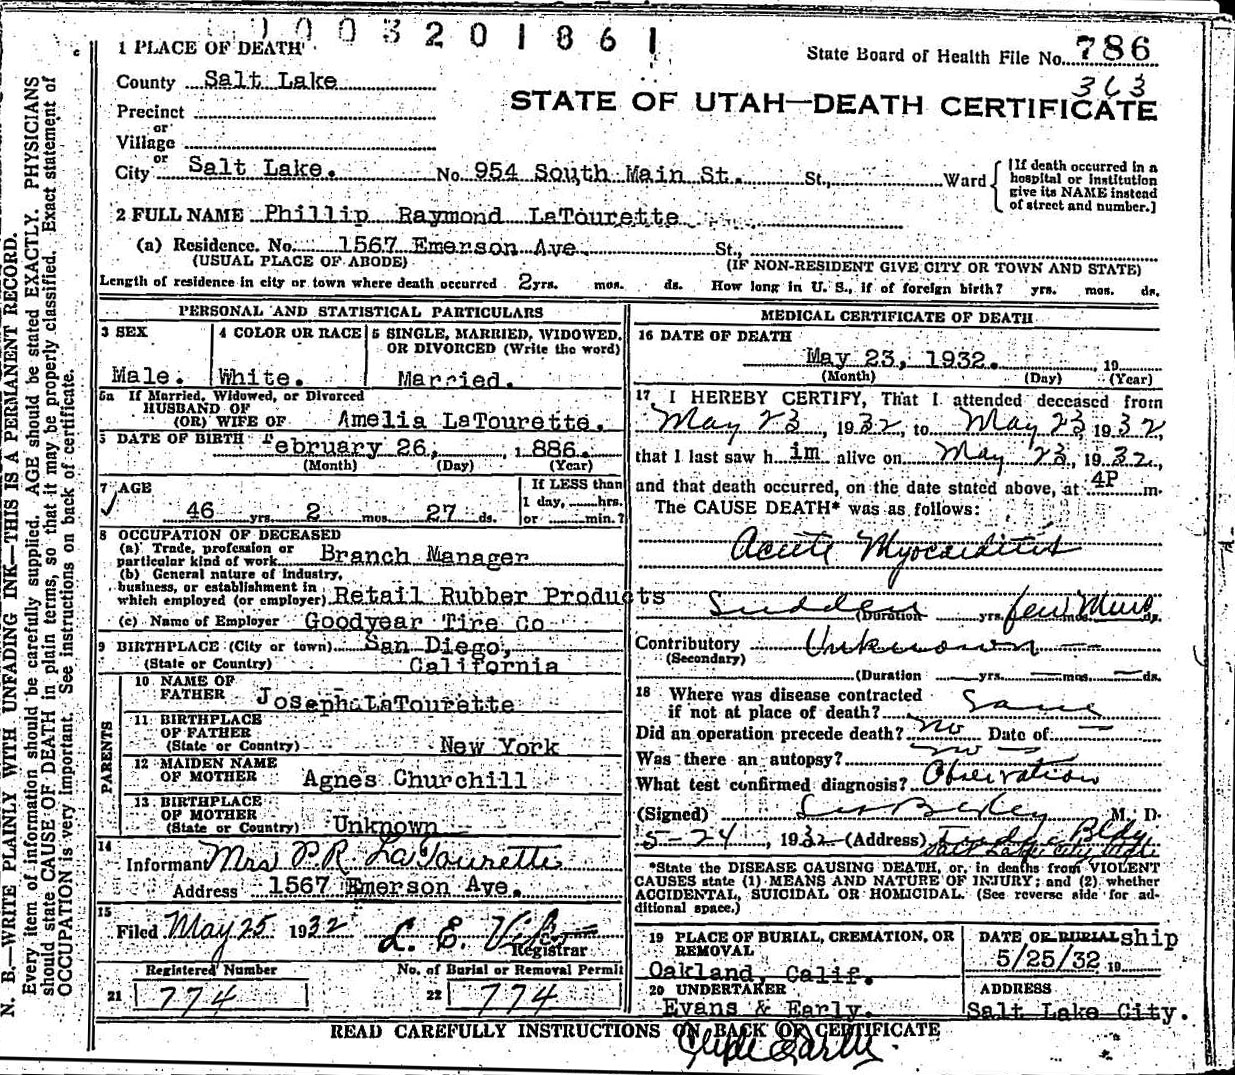 1003201861
1 PLACE OF DEATH
State Board of Health File No. 786
County Salt Lake
363
STATE OF UTAH—DEATH CERTIFICATE
Precinct
or
Village
or
City Salt Lake. No. 954 South Main St. St., Ward
[If death occurred in a hospital or institution give its NAME instead of street and number.]
2 FULL NAME Phillip Raymond LaTourette
(a) Residence. No. 1567 Emerson Ave. St.,
(USUAL PLACE OF ABODE) (IF NON-RESIDENT GIVE CITY OR TOWN AND STATE)
Length of residence in city or town where death occurred 2 yrs. mos. ds. How long in U. S., if of foreign birth? yrs. mos. ds.
PERSONAL AND STATISTICAL PARTICULARS
3 SEX 4 COLOR OR RACE 5 SINGLE, MARRIED, WIDOWED,
OR DIVORCED (Write the word)
Male. White. Married.
5a If Married, Widowed, or Divorced
HUSBAND OF
(OR) WIFE OF Amelia LaTourette.
DATE OF BIRTH February 26, 1886.
(Month) (Day) (Year)
7 AGE If LESS than
1 day, hrs.
46 yrs. 2 mos. 27 ds. or min.?
8 OCCUPATION OF DECEASED
(a) Trade, profession or
particular kind of work Branch Manager
(b) General nature of industry,
business, or establishment in
which employed (or employer) Retail Rubber Products
(c) Name of Employer Goodyear Tire Co
9 BIRTHPLACE (City or town) San Diego,
(State or Country) California
PARENTS
10 NAME OF
FATHER Joseph LaTourette
11 BIRTHPLACE
OF FATHER
(State or Country) New York
12 MAIDEN NAME
OF MOTHER Agnes Churchill
13 BIRTHPLACE
OF MOTHER
(State or Country) Unknown
14
Informant Mrs P.R. LaTourette
Address 1567 Emerson Ave.
15
Filed May 25 1932 L. E.
Registrar
Registered Number No. of Burial or Removal Permit
21 774 22 774
MEDICAL CERTIFICATE OF DEATH
16 DATE OF DEATH
May 23, 1932. 19
(Month) (Day) (Year)
17 I HEREBY CERTIFY, That I attended deceased from
May 23, 1932, to May 23 1932,
that I last saw him alive on May 23, 1932,
and that death occurred, on the date stated above, at 4P m.
The CAUSE DEATH* was as follows:
Acute Myocarditis
Sudden (Duration yrs. few Mins mos. ds.
Contributory Unknown
(Secondary)
(Duration yrs. mos. ds.
18 Where was disease contracted
if not at place of death? Same
Did an operation precede death? No Date of —
Was there an autopsy? no —
What test confirmed diagnosis? Observation
(Signed) M. D.
5-24, 1932 (Address) Bldg
Salt Lake City Utah
*State the DISEASE CAUSING DEATH, or, in deaths from VIOLENT
CAUSES state (1) MEANS AND NATURE OF INJURY; and (2) whether
ACCIDENTAL, SUICIDAL OR HOMICIDAL. (See reverse side for ad-
ditional space.)
19 PLACE OF BURIAL, CREMATION, OR
REMOVAL
Oakland, Calif.
DATE OR BURIAL ship
5/25/32 19
20 UNDERTAKER ADDRESS
Evans & Early. Salt Lake City.
READ CAREFULLY INSTRUCTIONS ON BACK OF CERTIFICATE
Clyde Early
N. B.—WRITE PLAINLY WITH UNFADING INK—THIS IS A PERMANENT RECORD.
Every item of information should be carefully supplied. AGE should be stated EXACTLY. PHYSICIANS
should state CAUSE OF DEATH in plain terms, so that it may be properly classified. Exact statement of
OCCUPATION is very important. See instructions on back of certificate.